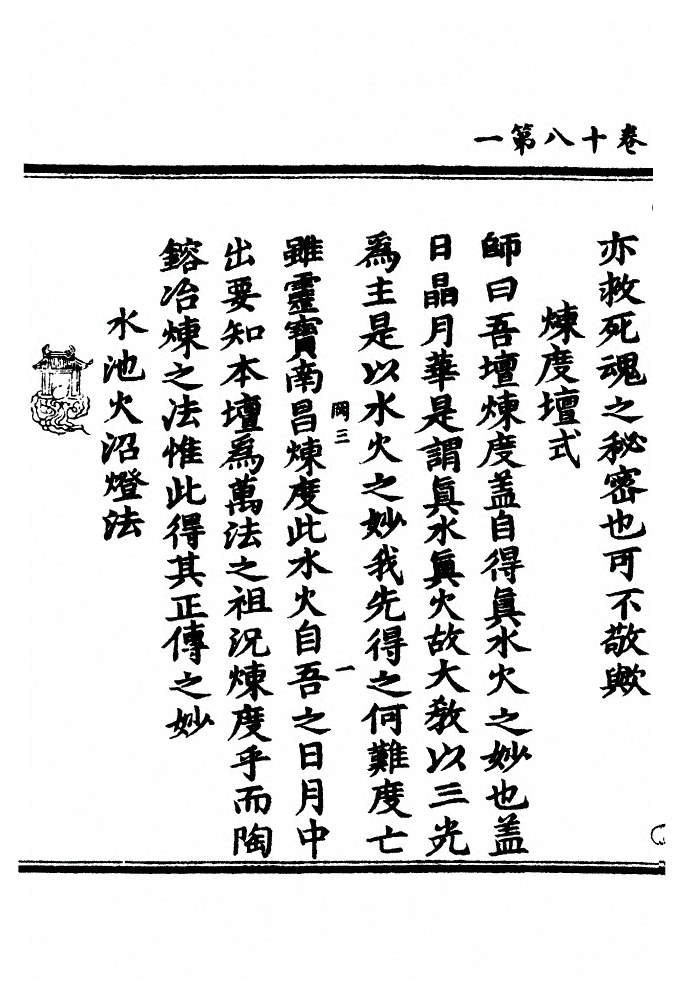 卷十八第一
亦救死魂之秘密也可不敬歟
煉度壇式
師曰吾壇煉度蓋自得眞水火之妙也蓋
日晶月華是謂眞水眞火故大教以三光
爲主是以水火之妙我先得之何難度亡
罔三
一
雖靈寶南昌煉度此水火自吾之日月中
出要知本壇爲萬法之祖況煉度乎而陶
鎔冶煉之法惟此得其正傳之妙
水池火沼燈法